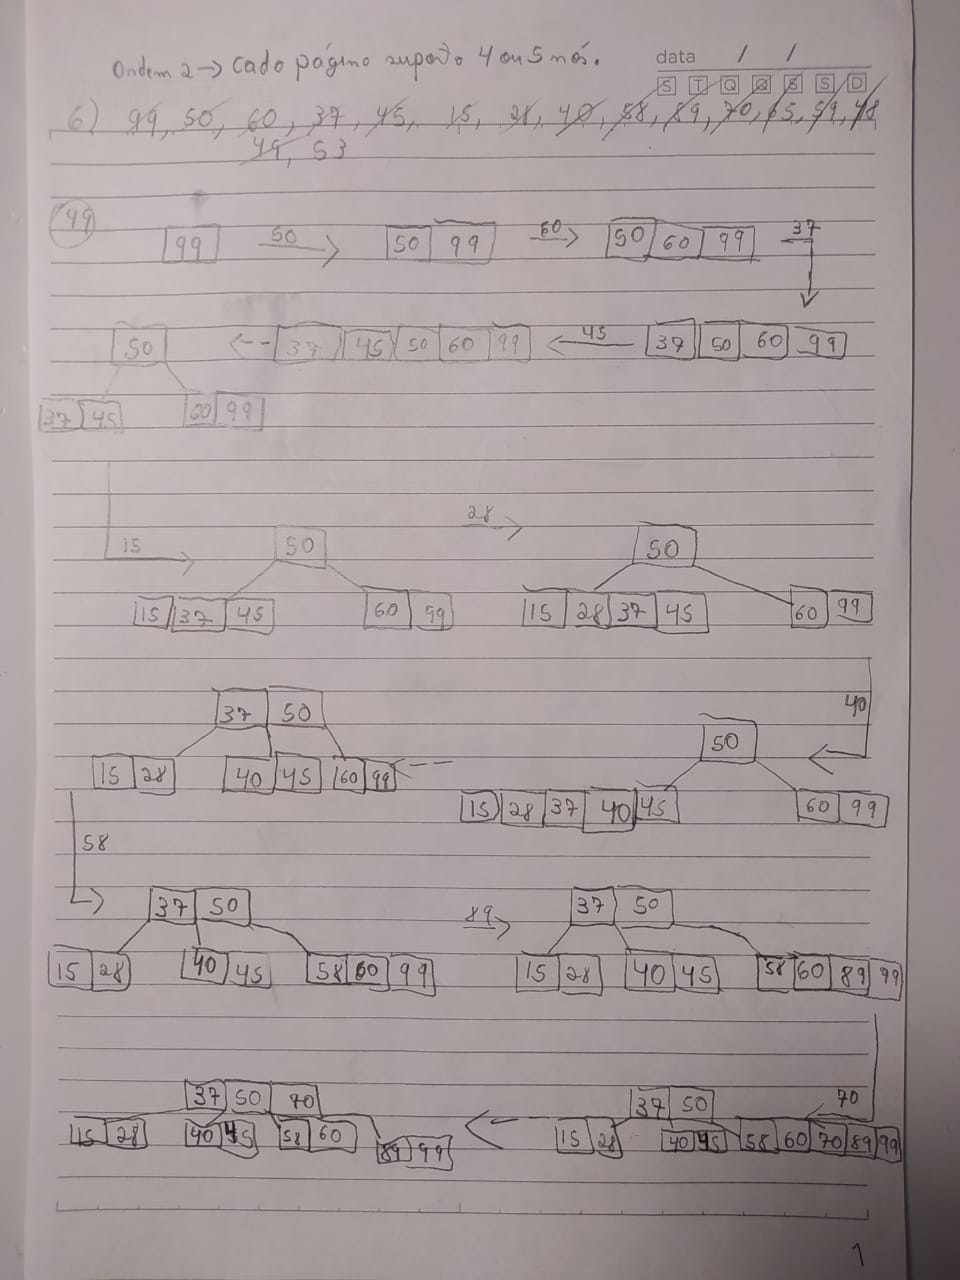 Ordem 2 → cada página suporta 4 ou 5 nós.
data / /
S T Q Q S S D
6) 99, 50, 60, 37, 45, 15, 28, 40, 58, 89, 70, 65, 59, 48
49, 53
99
99 50 50 99 60 50 60 99 37
50 37 45 50 60 99 45 37 50 60 99
37 45 60 99
28
15 50 50
15 37 45 60 99 15 28 37 45 60 99
37 50 40
50
15 28 40 45 60 99
15 28 37 40 45 60 99
58
37 50 89 37 50
15 28 40 45 58 60 99 15 28 40 45 58 60 89 99
37 50 70 37 50 70
15 28 40 45 58 60 89 99 15 28 40 45 58 60 70 89 99
1